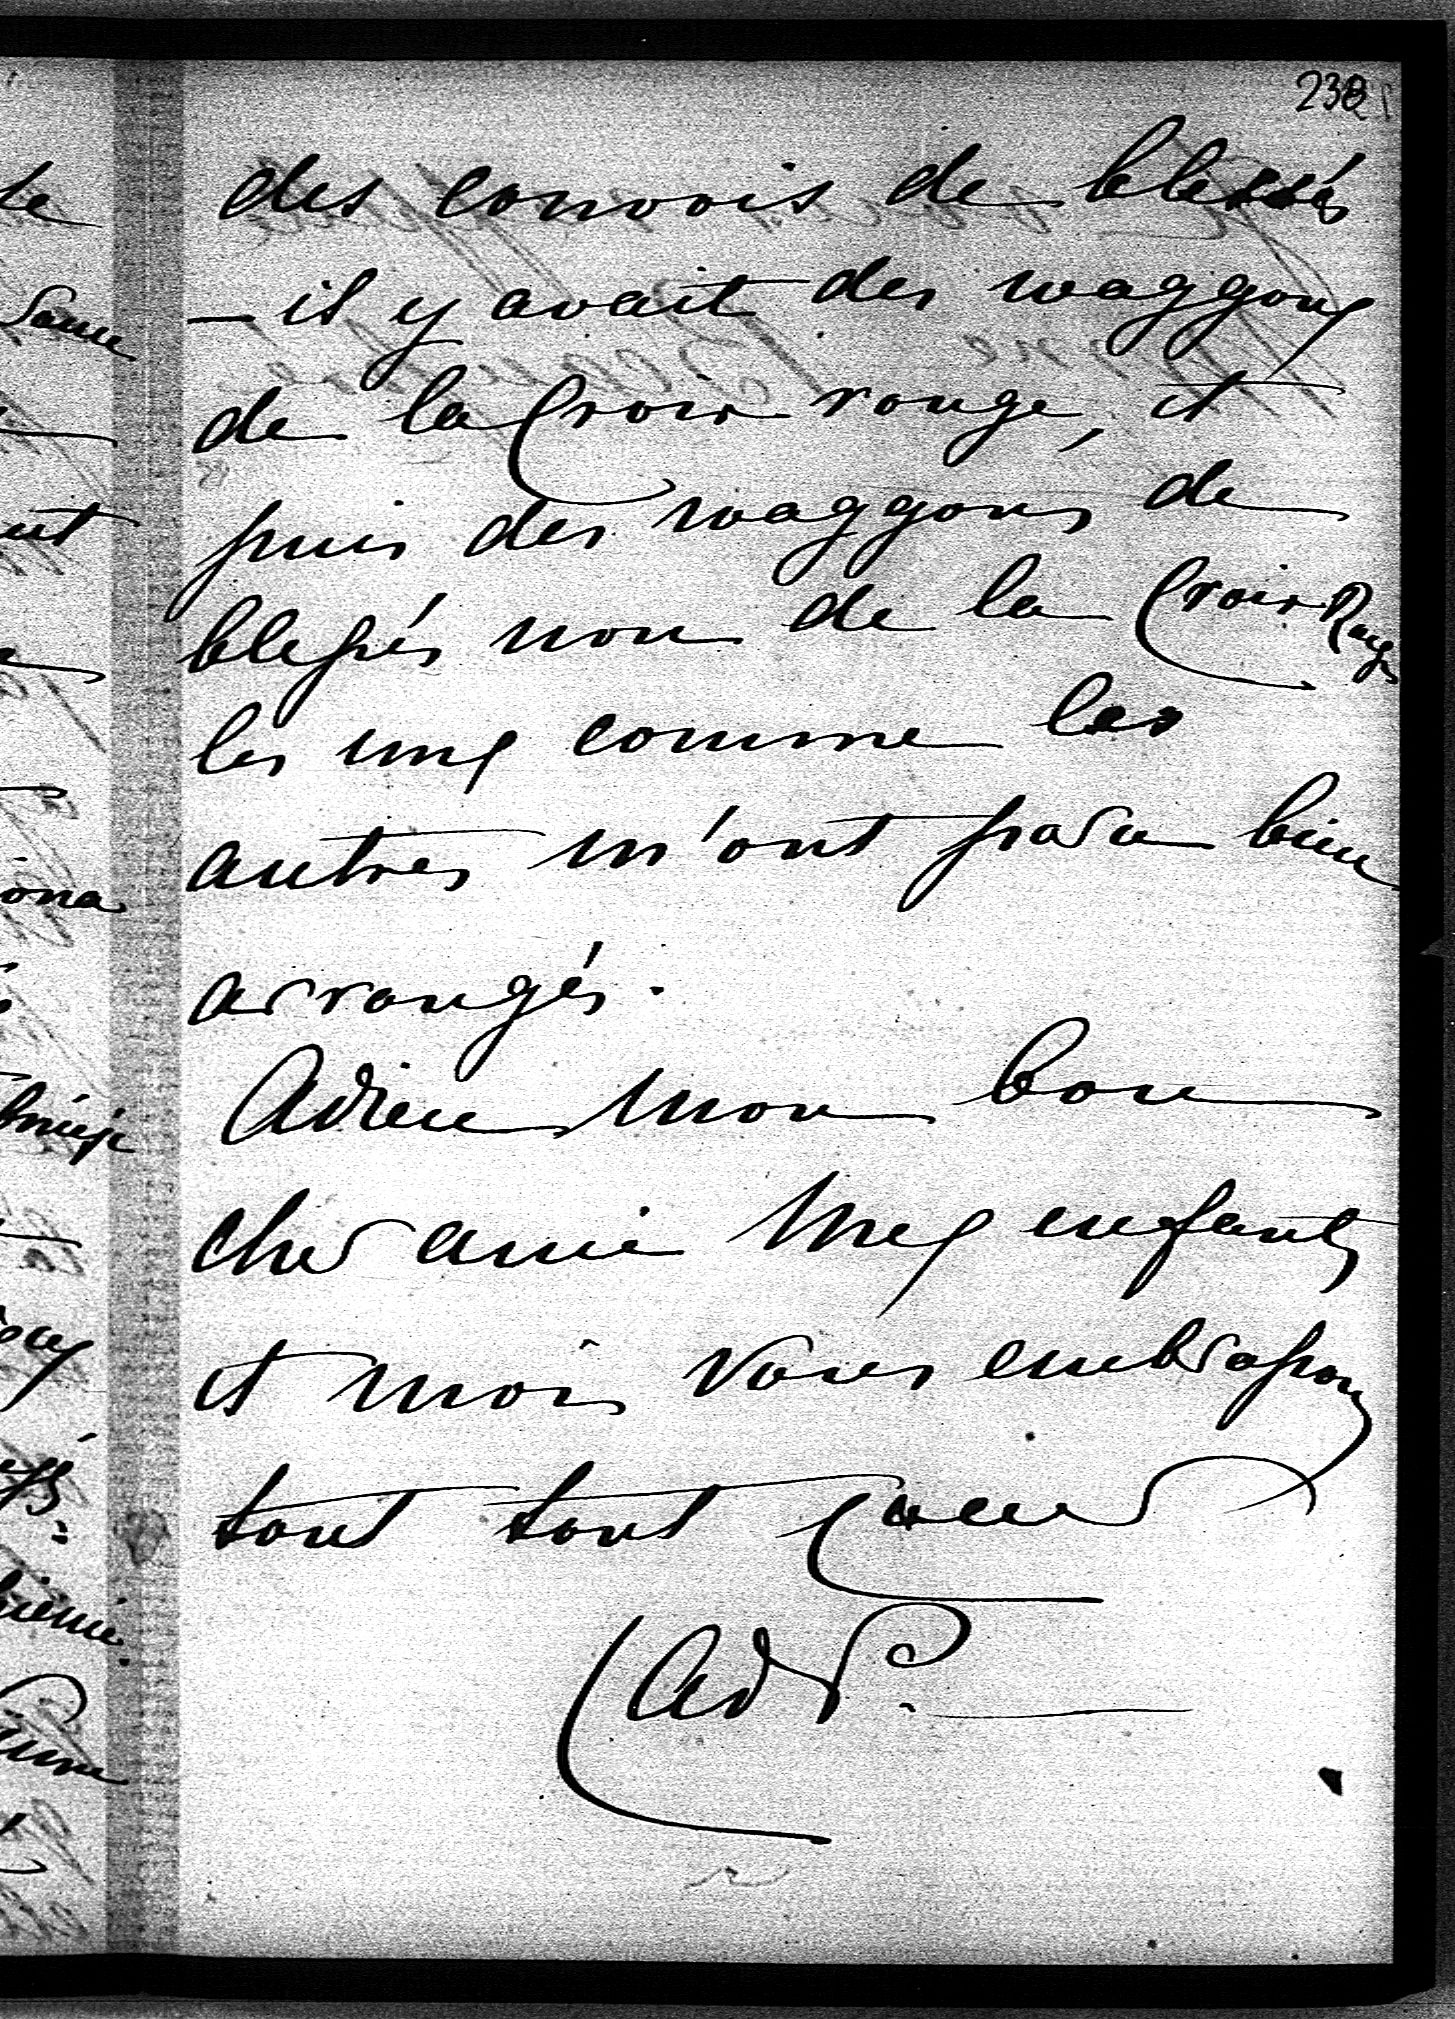 238
des convois de blessés
— il y avait des waggons
de la Croix rouge, et
puis des waggons de
blessés non de la Croix Rouge
les uns comme les
autres m'ont paru bien
arrangés.
Adieu mon bon
cher ami Mes enfants
et moi vous embrassons
tout tout cœur
Ad P.